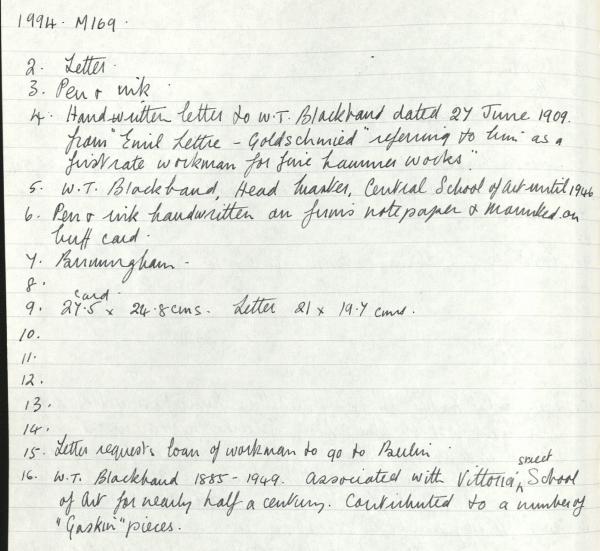 1994. M169.
2. Letter.
3. Pen & ink.
4. Handwritten letter to W.T. Blackband dated 27 June 1909.
from "Emil Lettre - Goldschmied" referring to him as a
first rate workman for fine hammer works".
5. W.T. Blackband, Head Master, Central School of Art until 1946
6. Pen & ink handwritten on firm's notepaper & mounted on
buff card.
7. Birmingham.
8.
card.
9. 27.5 x 24.8 cms. Letter 21 x 19.7 cms.
10.
11.
12.
13.
14.
15. Letter requests loan of workman to go to Berlin.
16. W.T. Blackband 1885-1949. Associated with Vittoria street School
of Art for nearly half a century. Contributed to a number of
"Gaskin" pieces.